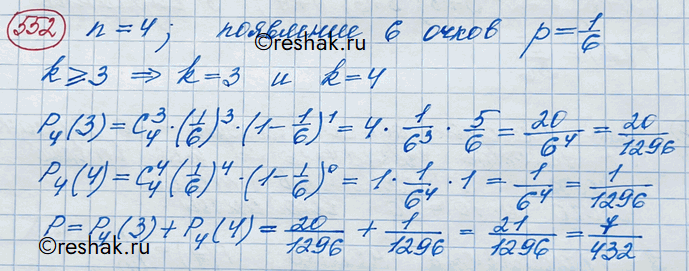 552 n = 4; появление 6 очков p = 1/6
©reshak.ru
k ⩾ 3 ⇒ k = 3 и k = 4
P₄(3) = C₄³ · (1/6)³ · (1 - 1/6)¹ = 4 · 1/6³ · 5/6 = 20/6⁴ = 20/1296
P₄(4) = C₄⁴ (1/6)⁴ · (1 - 1/6)⁰ = 1 · 1/6⁴ · 1 = 1/6⁴ = 1/1296
P = P₄(3) + P₄(4) = 20/1296 + 1/1296 = 21/1296 = 7/432
©reshak.ru